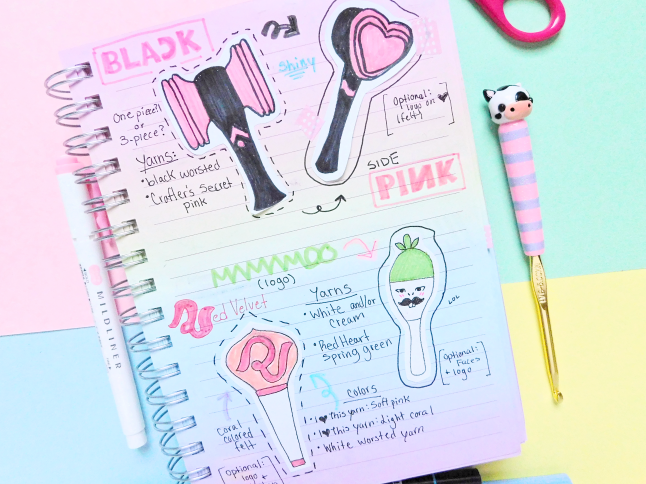 BLAƆK
shiny
One piece?
or
3-piece?
Yarns:
• black worsted
• Crafter's Secret
pink
Optional:
logo on ♥
(felt)
SIDE
PIИK
MAMAMOO
(logo)
Red Velvet
Yarns
• White and/or
cream
• Red Heart
spring green
LOL
optional:
Faces
+ logo
RV
coral
colored
felt
colors
• I ♥ This yarn: Soft pink
• I ♥ This yarn: Light coral
• White worsted yarn
optional:
logo
+
MILDLINER